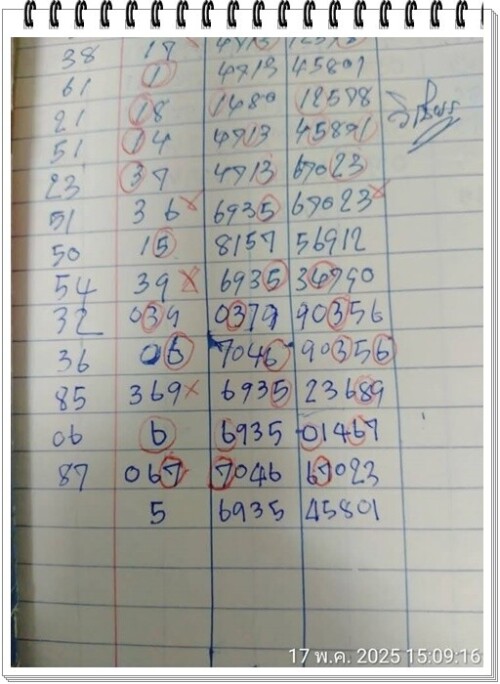 38 17 4713
61 1 4713 45801
21 18 1480 12578
51 14 4713 45891
23 37 4713 67023
51 36 x 6935 67023 x
50 15 8157 56912
54 39 x 6935 34790
32 039 0379 90356
36 06 7046 90356
85 369 x 6935 23689
06 6 6935 01467
87 067 7046 67023
5 6935 45801
17 พ.ค. 2025 15:09:16